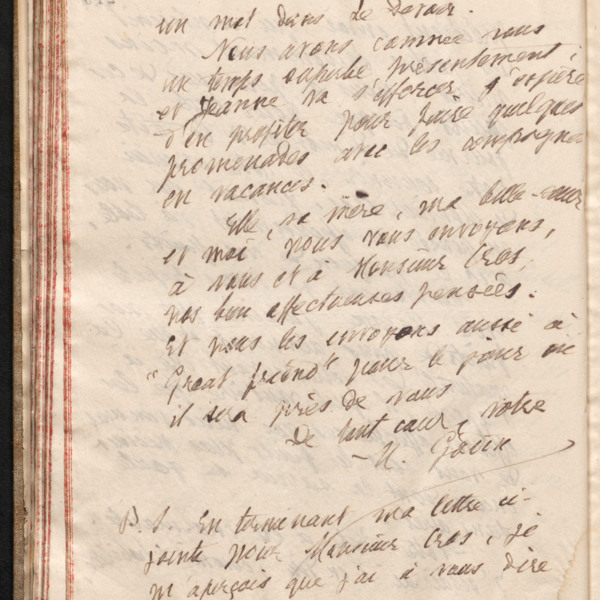 un mot dans Le Devoir.
Nous avons comme vous
un temps superbe présentement
et Jeanne va s'efforcer, j'espère
d'en profiter pour faire quelques
promenades avec les compagnes
en vacances.
Elle, sa mère, ma belle-sœur
et moi nous vous envoyons,
à vous et à Monsieur Cros,
nos bien affectueuses pensées.
Et nous les envoyons aussi à
"Great friend" pour le jour où
il sera près de vous
De tout cœur, votre
H.
P. S. En terminant ma lettre ci-
jointe pour Monsieur Cros, je
m'aperçois que j'ai à vous dire